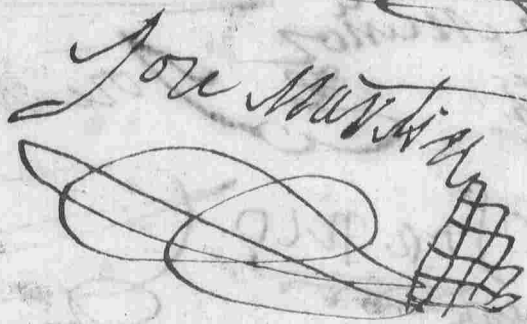 Jose Martin